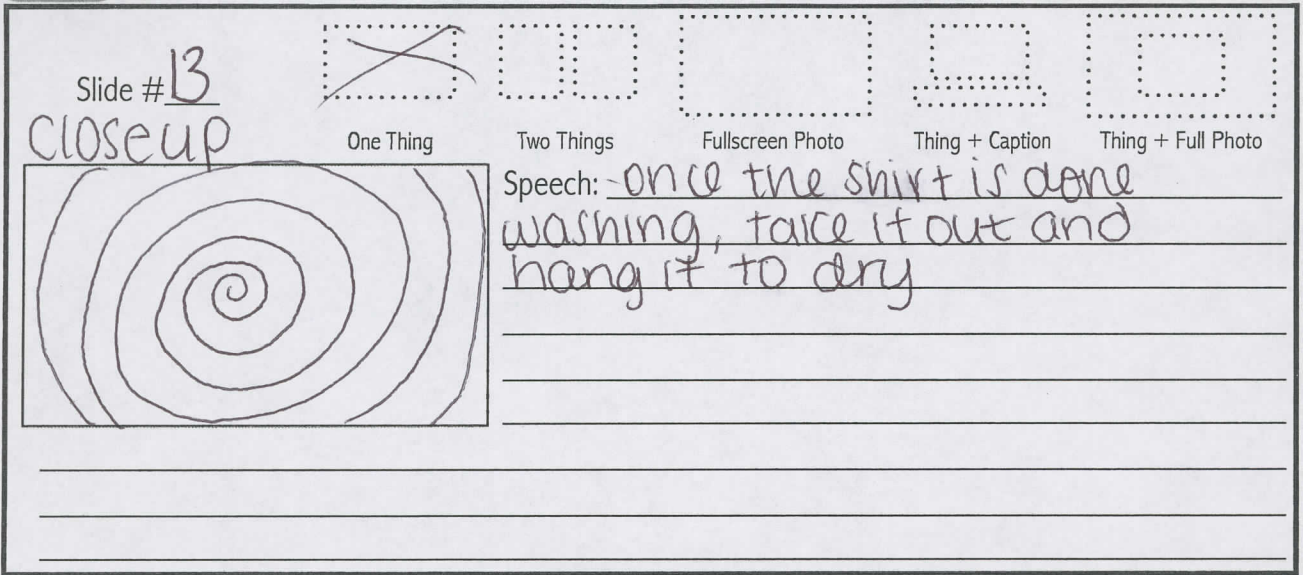 Slide # 13
closeup
One Thing
Two Things
Fullscreen Photo
Thing + Caption
Thing + Full Photo
Speech: once the shirt is done
washing, take it out and
hang it to dry